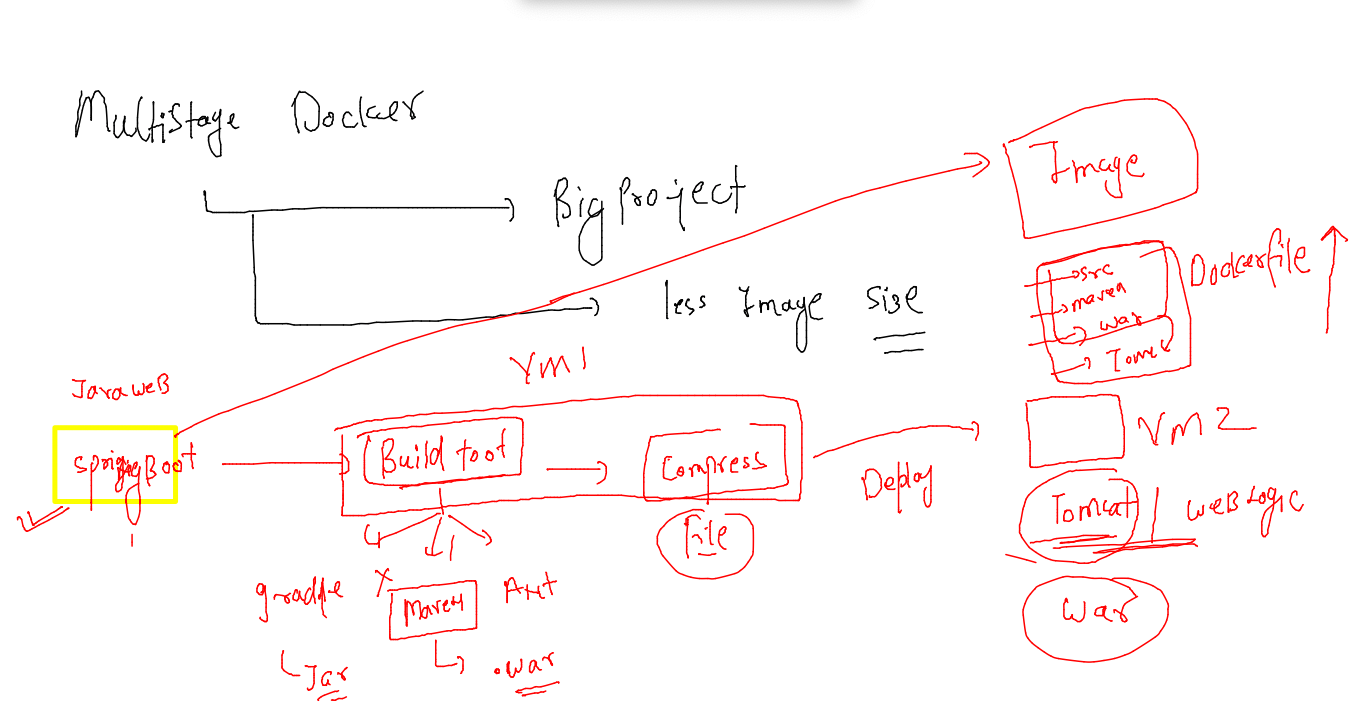 MultiStage Docker
Big Project
less Image size
Image
Dockerfile
→src
→maven
→ war
→ Tomc
VM1
JavaweB
Boot
Build toot
Compress
File
Deploy
VM2
Tomcat | weBLogic
war
gradle
X
Maven
Ant
Jar
.war